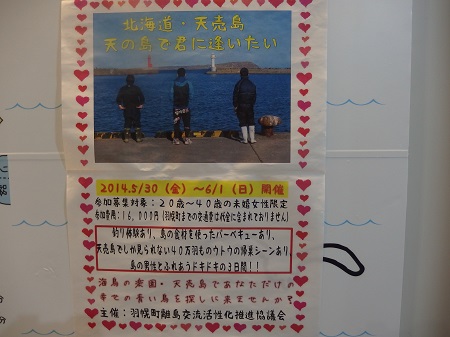 北海道・天売島
天の島で君に逢いたい
2014.5/30（金）～6/1（日）開催
参加募集対象：20歳～40歳の未婚女性限定
参加費用：16,000円（羽幌町までの交通費は料金に含まれておりません）
釣り体験あり、島の食材を使ったバーベキューあり、
天売島でしか見られない40万羽ものウトウの帰巣シーンあり、
島の男性とふれあうドキドキの3日間！！
海鳥の楽園・天売島であなただけの
幸せの青い鳥を探しに来ませんか？
主催：羽幌町離島交流活性化推進協議会